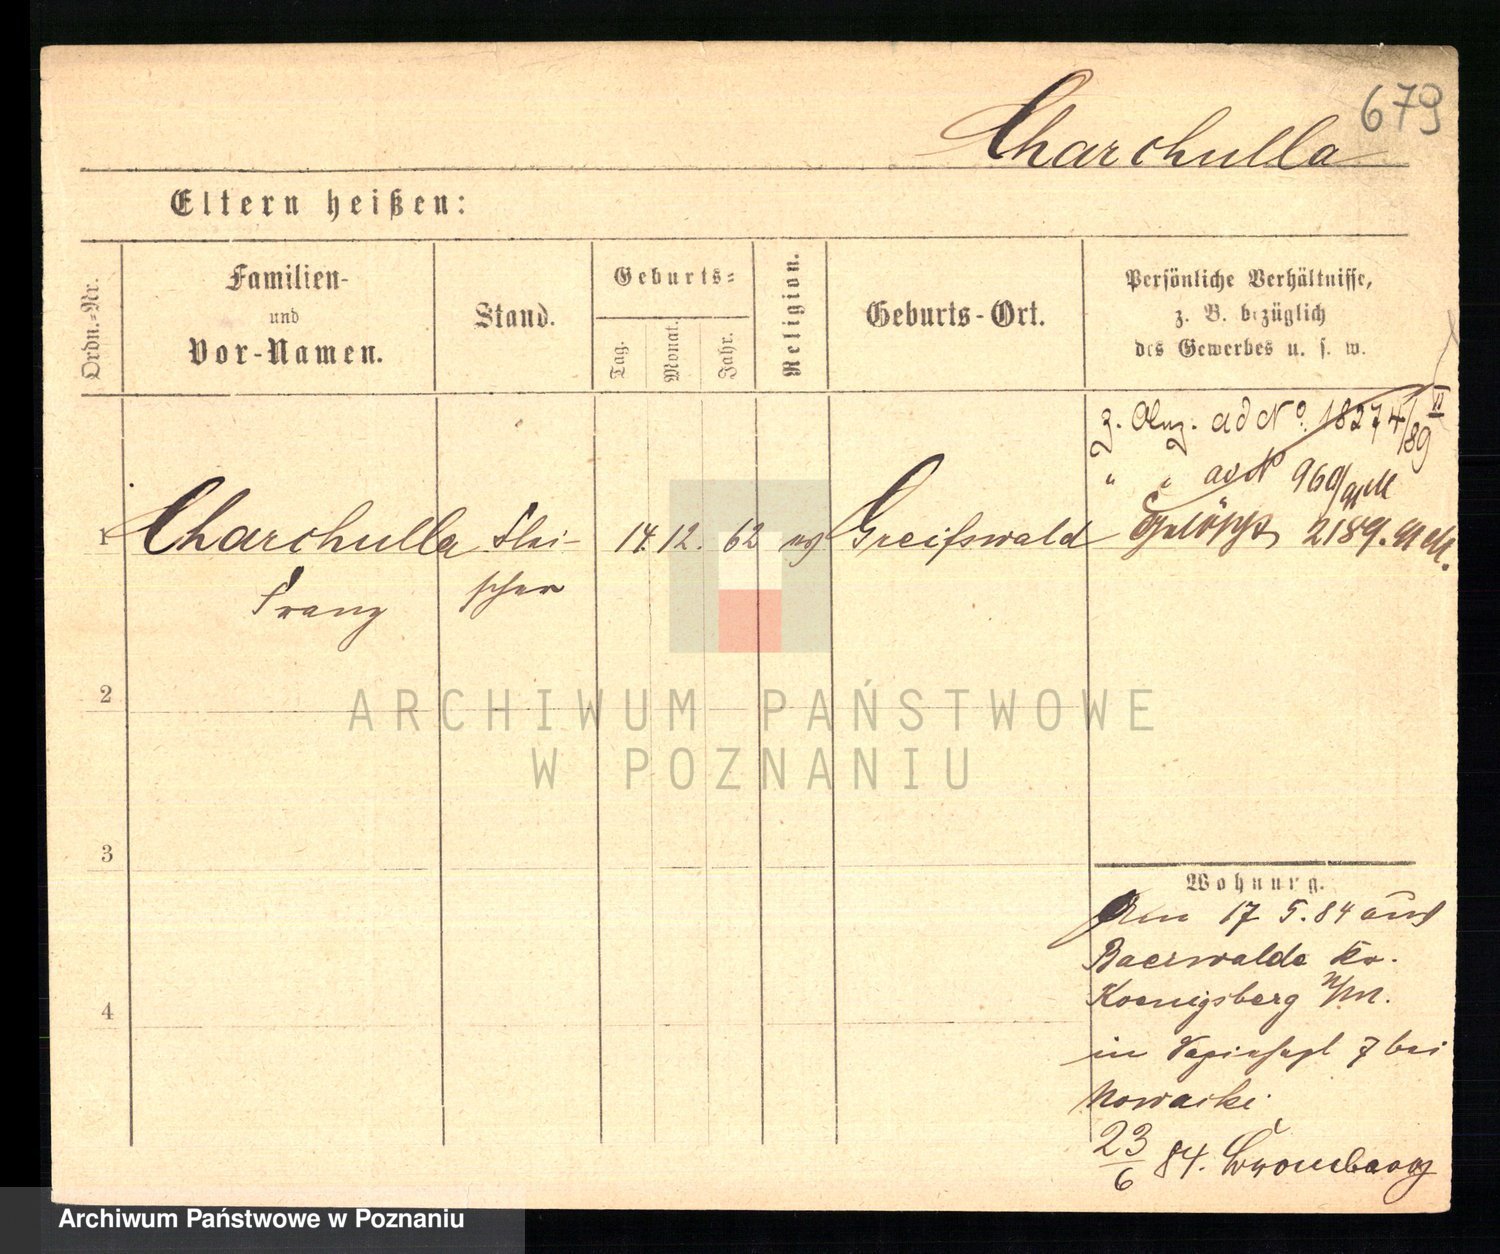 679
Charchulla
Eltern heißen:
Ordn.-Nr.
Familien-
und
Vor-Namen.
Stand.
Geburts-
Tag.
Monat.
Jahr.
Religion.
Geburts-Ort.
Persönliche Verhältnisse,
z. B. bezüglich
des Gewerbes u. s. w.
z. ad No. 18274/89 VI
" " ad No 960/91 M
1 Charchulla Flei- 14. 12. 62 ev Greifswald Gelöscht 2189.91 M.
Franz scher
2
ARCHIWUM PAŃSTWOWE
W POZNANIU
3
Wohnung.
Am 17 5. 84 aus
Baerwalde Kr.
Koenigsberg N/M.
in 7 bei
Nowacki
23/6 84. Bromberg
4
Archiwum Państwowe w Poznaniu